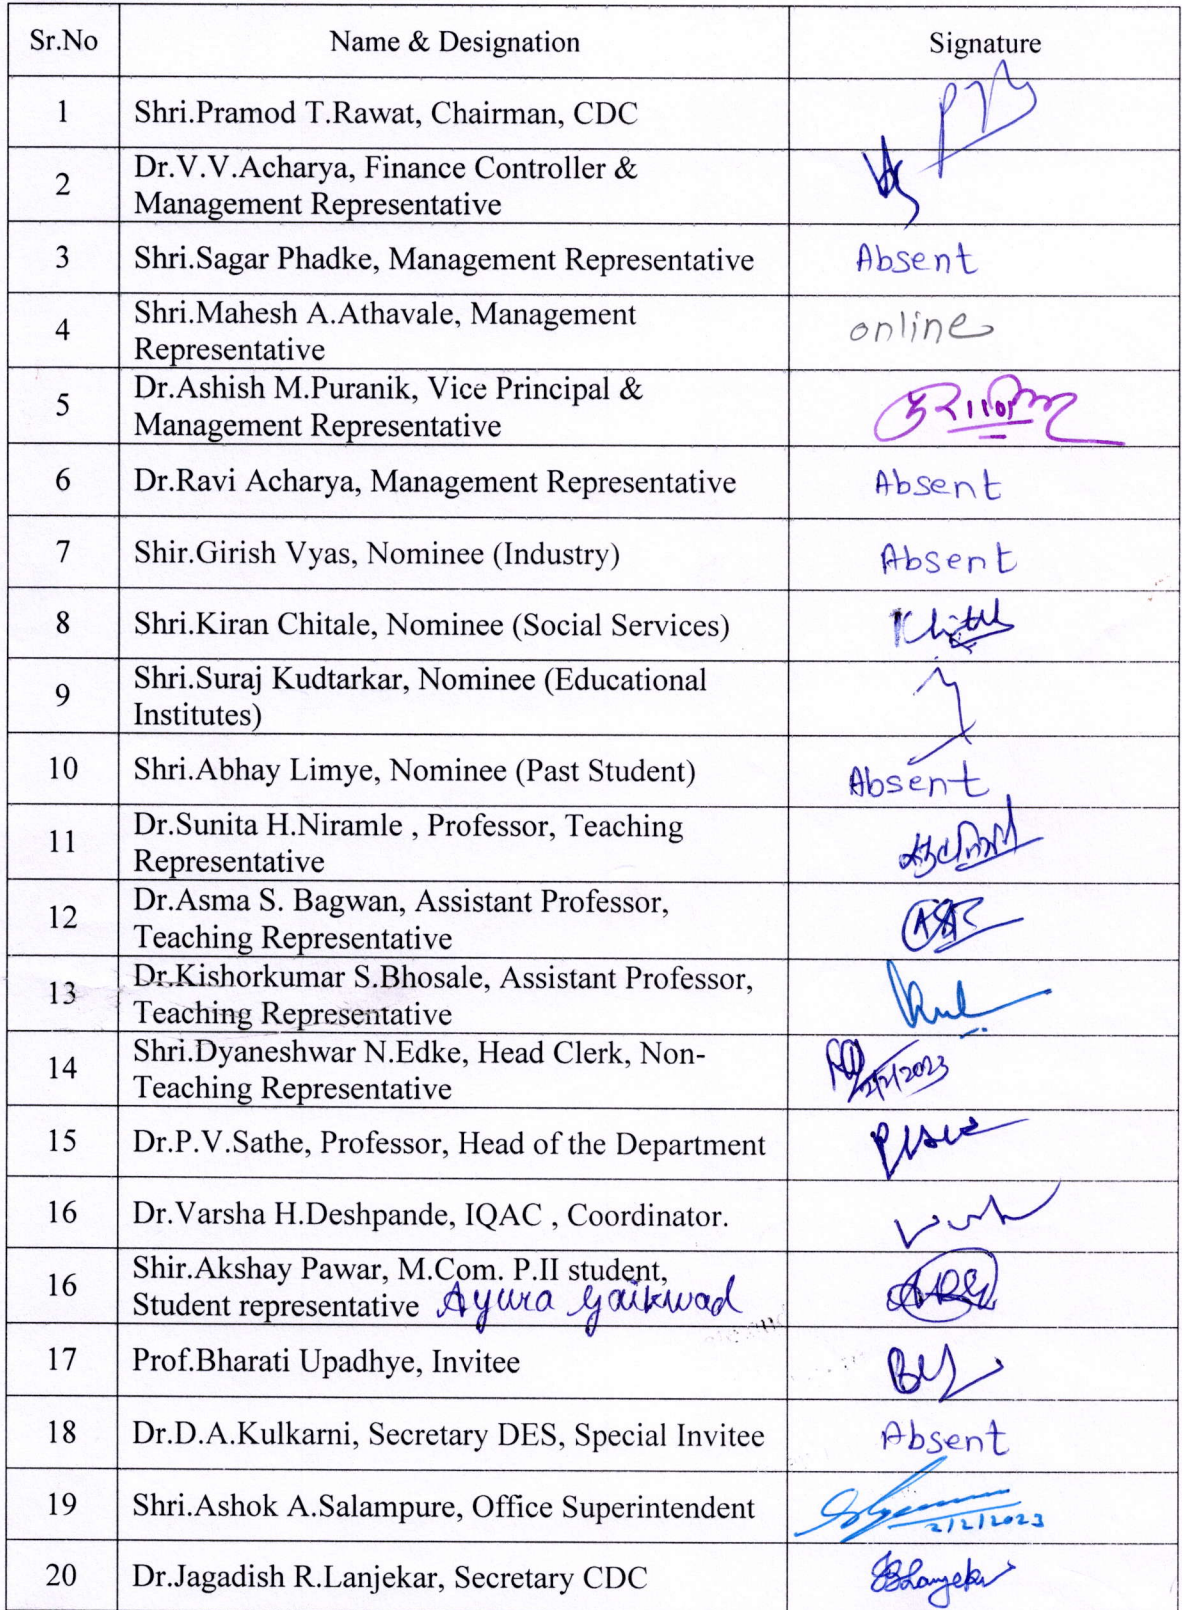 Sr.No Name & Designation Signature
1 Shri.Pramod T.Rawat, Chairman, CDC
2 Dr.V.V.Acharya, Finance Controller &
Management Representative
3 Shri.Sagar Phadke, Management Representative Absent
4 Shri.Mahesh A.Athavale, Management
Representative online
5 Dr.Ashish M.Puranik, Vice Principal &
Management Representative
6 Dr.Ravi Acharya, Management Representative Absent
7 Shir.Girish Vyas, Nominee (Industry) Absent
8 Shri.Kiran Chitale, Nominee (Social Services)
9 Shri.Suraj Kudtarkar, Nominee (Educational
Institutes)
10 Shri.Abhay Limye, Nominee (Past Student) Absent
11 Dr.Sunita H.Niramle , Professor, Teaching
Representative
12 Dr.Asma S. Bagwan, Assistant Professor,
Teaching Representative
13 Dr.Kishorkumar S.Bhosale, Assistant Professor,
Teaching Representative
14 Shri.Dyaneshwar N.Edke, Head Clerk, Non-
Teaching Representative 2/2/2023
15 Dr.P.V.Sathe, Professor, Head of the Department
16 Dr.Varsha H.Deshpande, IQAC , Coordinator.
16 Shir.Akshay Pawar, M.Com. P.II student,
Student representative Ayura Gaikwad
17 Prof.Bharati Upadhye, Invitee
18 Dr.D.A.Kulkarni, Secretary DES, Special Invitee Absent
19 Shri.Ashok A.Salampure, Office Superintendent 2/2/2023
20 Dr.Jagadish R.Lanjekar, Secretary CDC